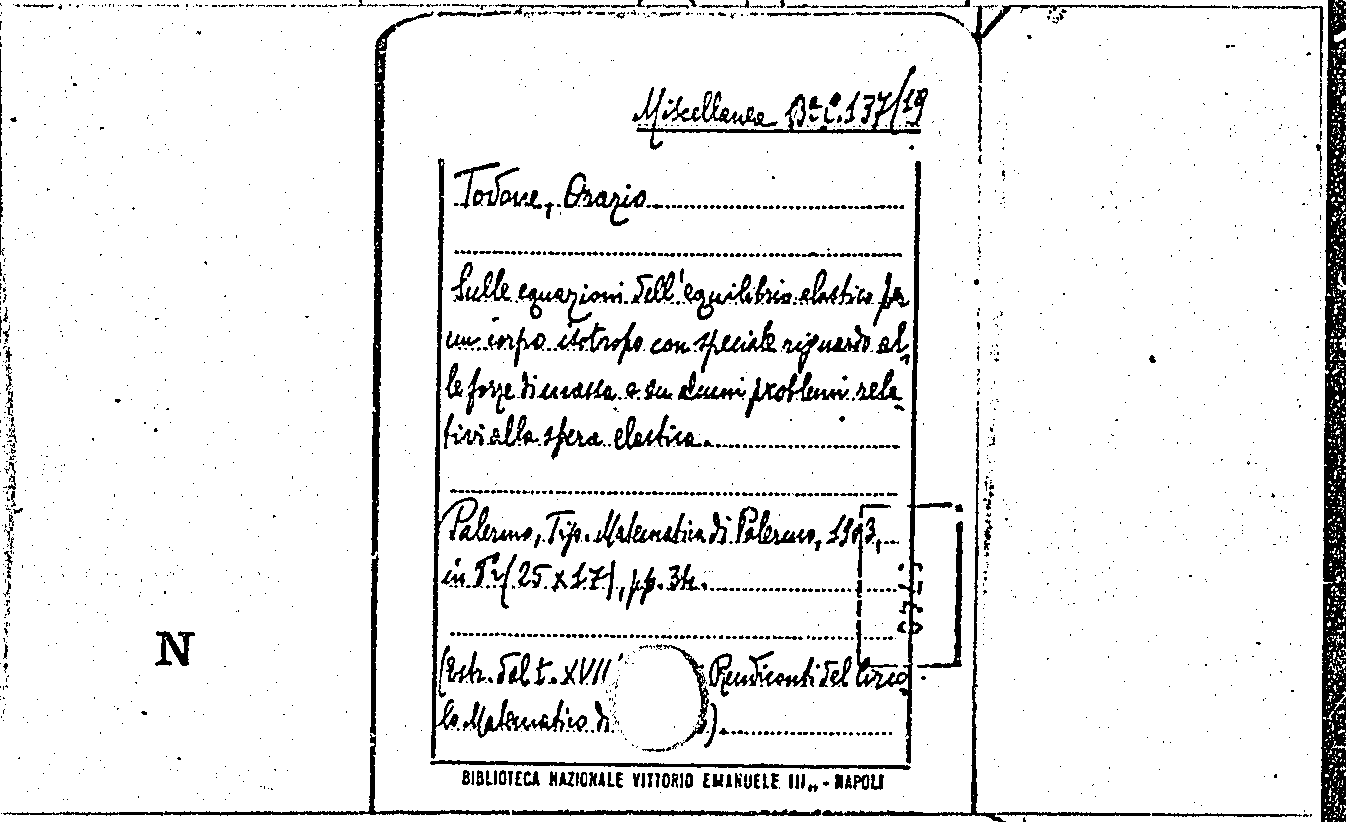 Miscellanea Bª C. 137/19
Tedone, Orazio
Sulle equazioni dell'equilibrio elastico per
un corpo isotropo con speciale riguardo al-
le forze di massa e su alcuni problemi rela-
tivi alla sfera elastica.
Palermo, Tip. Matematica di Palermo, 1903,
in 8º (25 x 17), pp. 34.
(Estr. dal t. XVII Rendiconti del Circo-
lo Matematico di )
BIBLIOTECA NAZIONALE VITTORIO EMANUELE III„ - NAPOLI
N